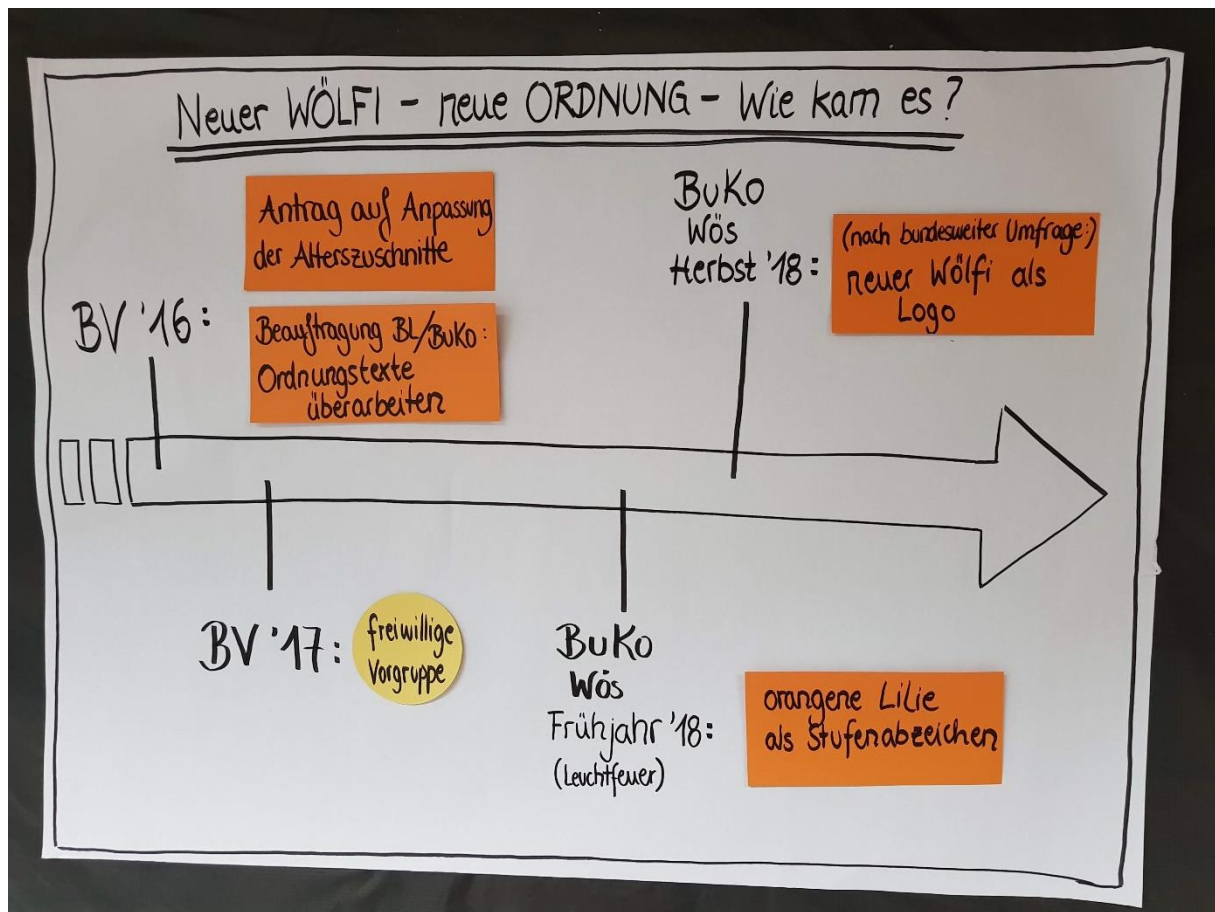 Neuer WÖLFI - neue ORDNUNG - Wie kam es?
BV '16:
Antrag auf Anpassung
der Alterszuschnitte
Beauftragung BL/BuKo:
Ordnungstexte
überarbeiten
BuKo
Wös
Herbst '18:
(nach bundesweiter Umfrage:)
neuer Wölfi als
Logo
BV '17:
freiwillige
Vorgruppe
BuKo
Wös
Frühjahr '18:
(Leuchtfeuer)
orangene Lilie
als Stufenabzeichen